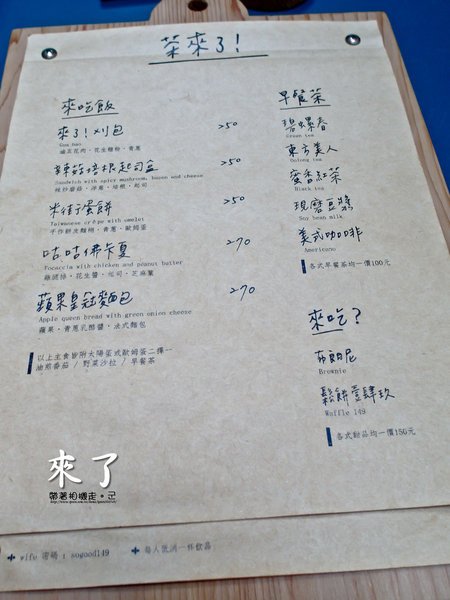 茶來了!
來吃飯
來了!刈包 250
Gua bao
滷五花肉、花生糖粉、青蔥
辣菇培根起司盒 250
Sandwich with spicy mushroom, bacon and cheese
辣炒蘑菇、洋蔥、培根、起司
米街蛋餅 250
Taiwanese crêpe with omelet
手作餅皮麵糊、青蔥、歐姆蛋
咕咕佛卡夏 270
Focaccia with chicken and peanut butter
雞認絲、花生醬、起司、芝麻葉
蘋果皇冠麵包 270
Apple queen bread with green onion cheese
蘋果、青蔥乳酪醬、法式麵包
以上主食皆附太陽蛋或歐姆蛋二擇一
油煎番茄 / 野菜沙拉 / 早餐茶
早餐茶
碧螺春
Green tea
東方美人
Oolong tea
蜜香紅茶
Black tea
現磨豆漿
Soy bean milk
美式咖啡
Americano
各式早餐茶均一價100元
來吃?
布朗尼
Brownie
鬆餅壹肆玖
Waffle 149
各式甜品均一價150元
來了
帶著相機走。2
wifu 密碼 : sogood149
每人低消一杯飲品